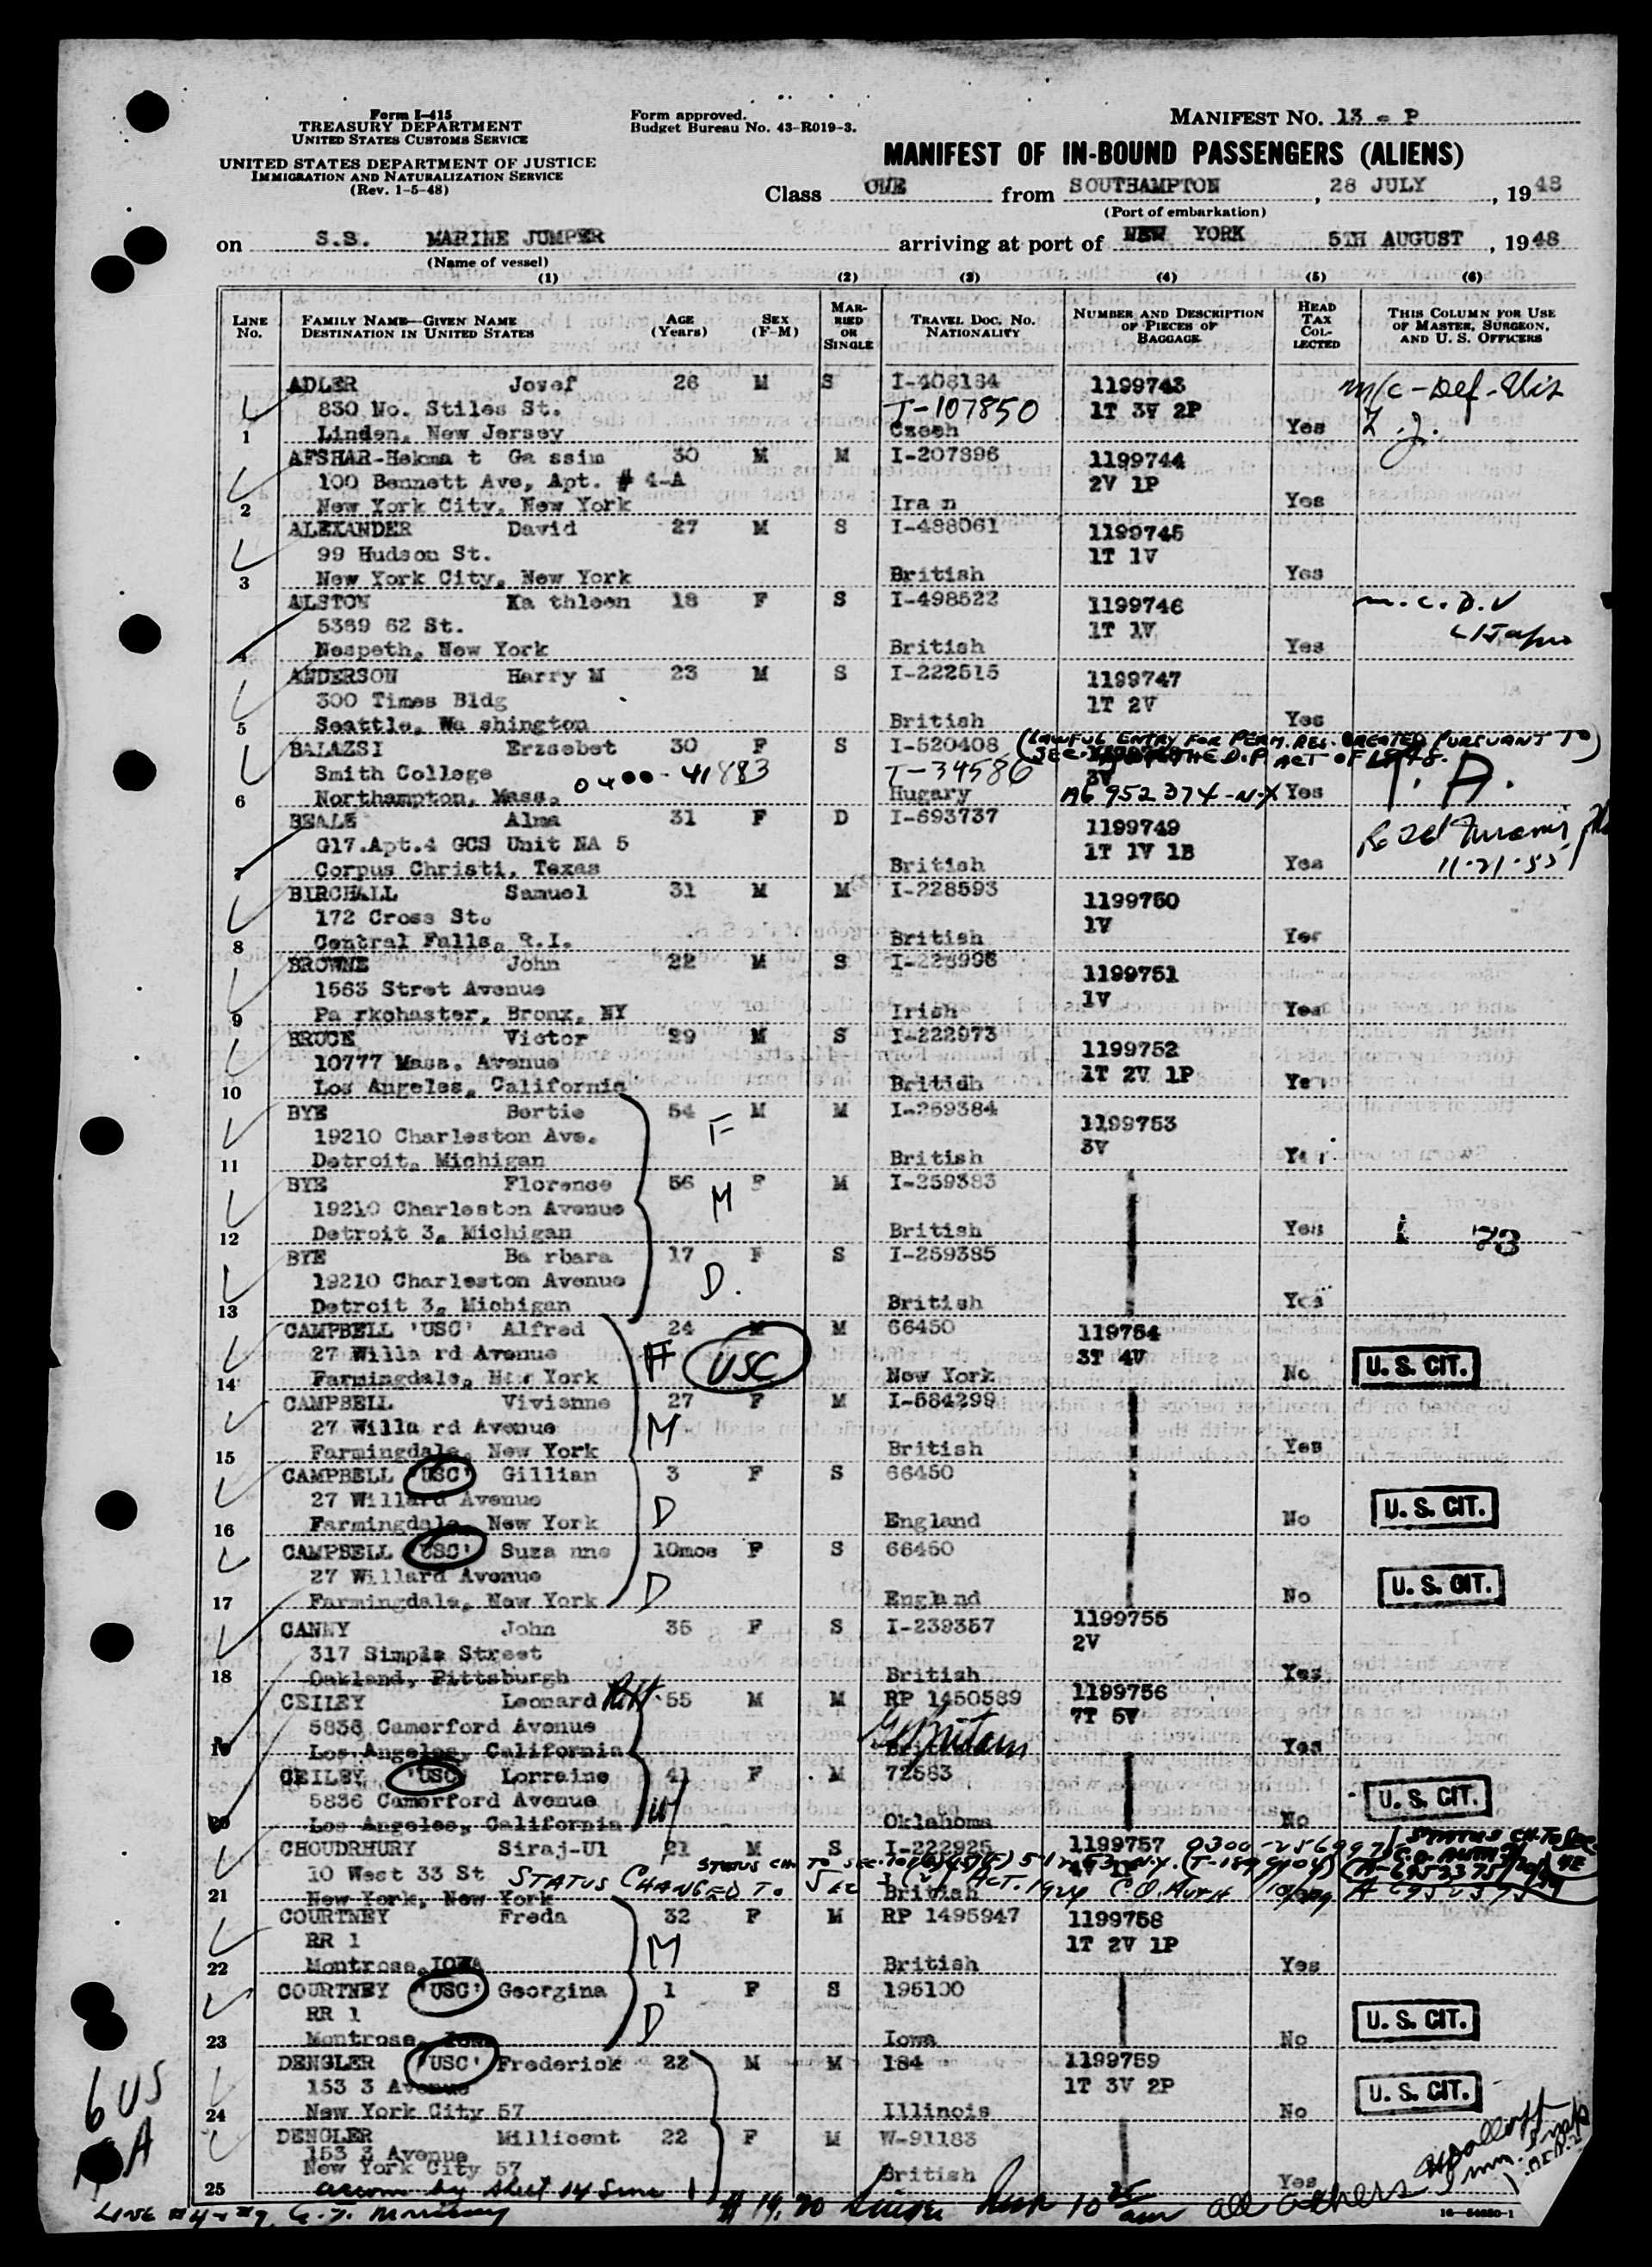 Form I-415
TREASURY DEPARTMENT
UNITED STATES CUSTOMS SERVICE
UNITED STATES DEPARTMENT OF JUSTICE
IMMIGRATION AND NATURALIZATION SERVICE
(Rev. 1-5-48)
Form approved.
Budget Bureau No. 43-R019-3.
MANIFEST NO. 13 - P
MANIFEST OF IN-BOUND PASSENGERS (ALIENS)
Class ONE from SOUTHAMPTON, 28 JULY, 1948
(Port of embarkation)
on S.S. MARINE JUMPER arriving at port of NEW YORK 5TH AUGUST, 1948
(Name of vessel)
(1) (2) (3) (4) (5) (6)
LINE No. FAMILY NAME—GIVEN NAME DESTINATION IN UNITED STATES AGE (Years) SEX (F-M) MARRIED OR SINGLE TRAVEL DOC. NO. NATIONALITY NUMBER AND DESCRIPTION OF PIECES OF BAGGAGE HEAD TAX COLLECTED THIS COLUMN FOR USE OF MASTER, SURGEON, AND U. S. OFFICERS
ADLER Josef 26 M S I-408184 1199743 m/c-Def-
830 No. Stiles St. T-107850 1T 3V 2P
1 Linden, New Jersey Czech Yes
AFSHAR-Hekma t Ga ssim 30 M M I-207896 1199744
100 Bennett Ave, Apt. # 4-A 2V 1P
2 New York City, New York Ira n Yes
ALEXANDER David 27 M S I-498061 1199745
99 Hudson St. 1T 1V
3 New York City, New York British Yes
ALSTON Ka thleen 18 F S I-498522 1199746 m.c.D.V
5369 62 St. 1T 1V
4 Nespeth, New York British Yes
ANDERSON Harry M 23 M S I-222515 1199747
300 Times Bldg 1T 2V
5 Seattle, Wa shington British Yes
BALAZSI Erzsebet 30 F S I-520408 (LAWFUL ENTRY FOR PERM. RES. CREATED PURSUANT TO
Smith College 0400-41883 T-34586 3V THE D.P. ACT OF 1948.)
6 Northampton, Mass. Hugary A6 952 374-N.Y Yes T. A.
BEALE Alma 31 F D I-693737 1199749
G17.Apt.4 GCS Unit NA 5 1T 1V 1B
7 Corpus Christi, Texas British Yes 11-21-55
BIRCHALL Samuel 31 M M I-228593 1199750
172 Cross St. 1V
8 Central Falls, R.I. British Yes
BROWNE John 22 M S I-228996 1199751
1563 Stret Avenue 1V
9 Pa rkchaster, Bronx, NY Irish Yes
BRUCE Victor 29 M S I-222973 1199752
10777 Mass. Avenue 1T 2V 1P
10 Los Angeles, California Britidh Yes
BYE Bertie 54 M M I-259384 1199753
19210 Charleston Ave. F 3V
11 Detroit, Michigan British Yes
BYE Florence 56 F M I-259383
19210 Charleston Avenue M
12 Detroit 3, Michigan British Yes
BYE Ba rbara 17 F S I-259385
19210 Charleston Avenue D.
13 Detroit 3, Michigan British Yes
CAMPBELL 'USC' Alfred 24 M M 66450 119754
27 Willa rd Avenue F USC 3T 4V U.S. CIT.
14 Farmingdale, New York New York No
CAMPBELL Vivienne 27 F M I-584299
27 Willa rd Avenue M
15 Farmingdale, New York British Yes
CAMPBELL 'USC' Gillian 3 F S 66450
27 Willard Avenue D U.S. CIT.
16 Farmingdale, New York England No
CAMPBELL 'USC' Suza nne 10mos F S 66450
27 Willard Avenue D U.S. CIT.
17 Farmingdale, New York England No
CANNY John 35 F S I-239357 1199755
317 Simple Street 2V
18 Oakland, Pittsburgh British Yes
CEILEY Leonard 55 M M RP 1450589 1199756
5836 Camerford Avenue 7T 5V
19 Los Angeles, California Yes
CEILEY 'USC' Lorraine 41 F M 72583
5836 Camerford Avenue W U.S. CIT.
20 Los Angeles, California Oklahoma No
CHOUDRHURY Siraj-Ul 21 M S I-222925 1199757
10 West 33 St STATUS CHANGED TO
21 New York, New York British
COURTNEY Freda 32 F M RP 1495947 1199758
RR 1 M 1T 2V 1P
22 Montrose, IOWA British Yes
COURTNEY 'USC' Georgina 1 F S 195100
RR 1 D U.S. CIT.
23 Montrose, Iowa Iowa No
DENGLER 'USC' Frederick 22 M M 184 1199759
153 3 Avenue 1T 3V 2P U.S. CIT.
24 New York City 57 Illinois No
DENGLER Millicent 22 F M W-91183
153 3 Avenue
New York City 57 British Yes
25 accom by sheet 14 Line 1
6 US
A
all others
16—54650-1